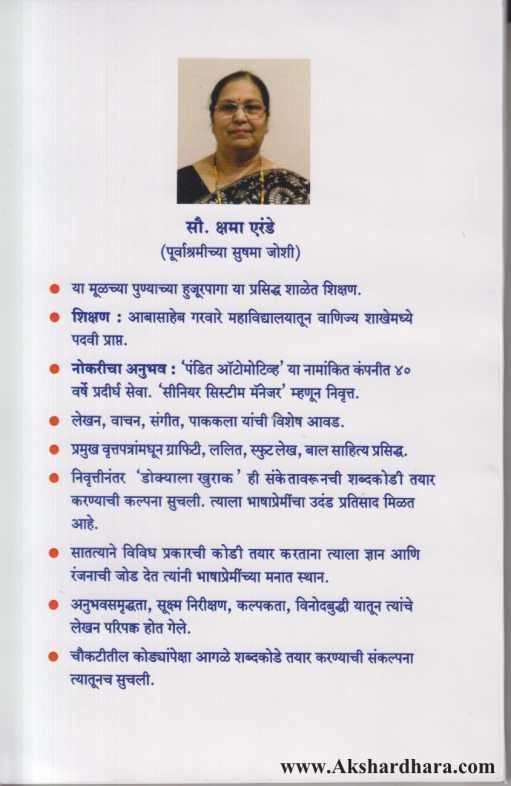 सौ. क्षमा एरंडे
(पूर्वाश्रमीच्या सुषमा जोशी)
• या मूळच्या पुण्याच्या हुजूरपागा या प्रसिद्ध शाळेत शिक्षण.
• शिक्षण : आबासाहेब गरवारे महाविद्यालयातून वाणिज्य शाखेमध्ये
पदवी प्राप्त.
• नोकरीचा अनुभव : ‘पंडित ऑटोमोटिव्ह’ या नामांकित कंपनीत ४०
वर्षे प्रदीर्घ सेवा. ‘सीनियर सिस्टीम मॅनेजर’ म्हणून निवृत्त.
• लेखन, वाचन, संगीत, पाककला यांची विशेष आवड.
• प्रमुख वृत्तपत्रांमघून ग्राफिटी, ललित, स्फुटलेख, बाल साहित्य प्रसिद्ध.
• निवृत्तीनंतर ‘डोक्याला खुराक’ ही संकेतावरूनची शब्दकोडी तयार
करण्याची कल्पना सुचली. त्याला भाषाप्रेमींचा उदंड प्रतिसाद मिळत
आहे.
• सातत्याने विविध प्रकारची कोडी तयार करताना त्याला ज्ञान आणि
रंजनाची जोड देत त्यांनी भाषाप्रेमींच्या मनात स्थान.
• अनुभवसमृद्धता, सूक्ष्म निरीक्षण, कल्पकता, विनोदबुद्धी यातून त्यांचे
लेखन परिपक्व होत गेले.
• चौकटीतील कोड्यांपेक्षा आगळे शब्दकोडे तयार करण्याची संकल्पना
त्यातूनच सुचली.
www.Akshardhara.com